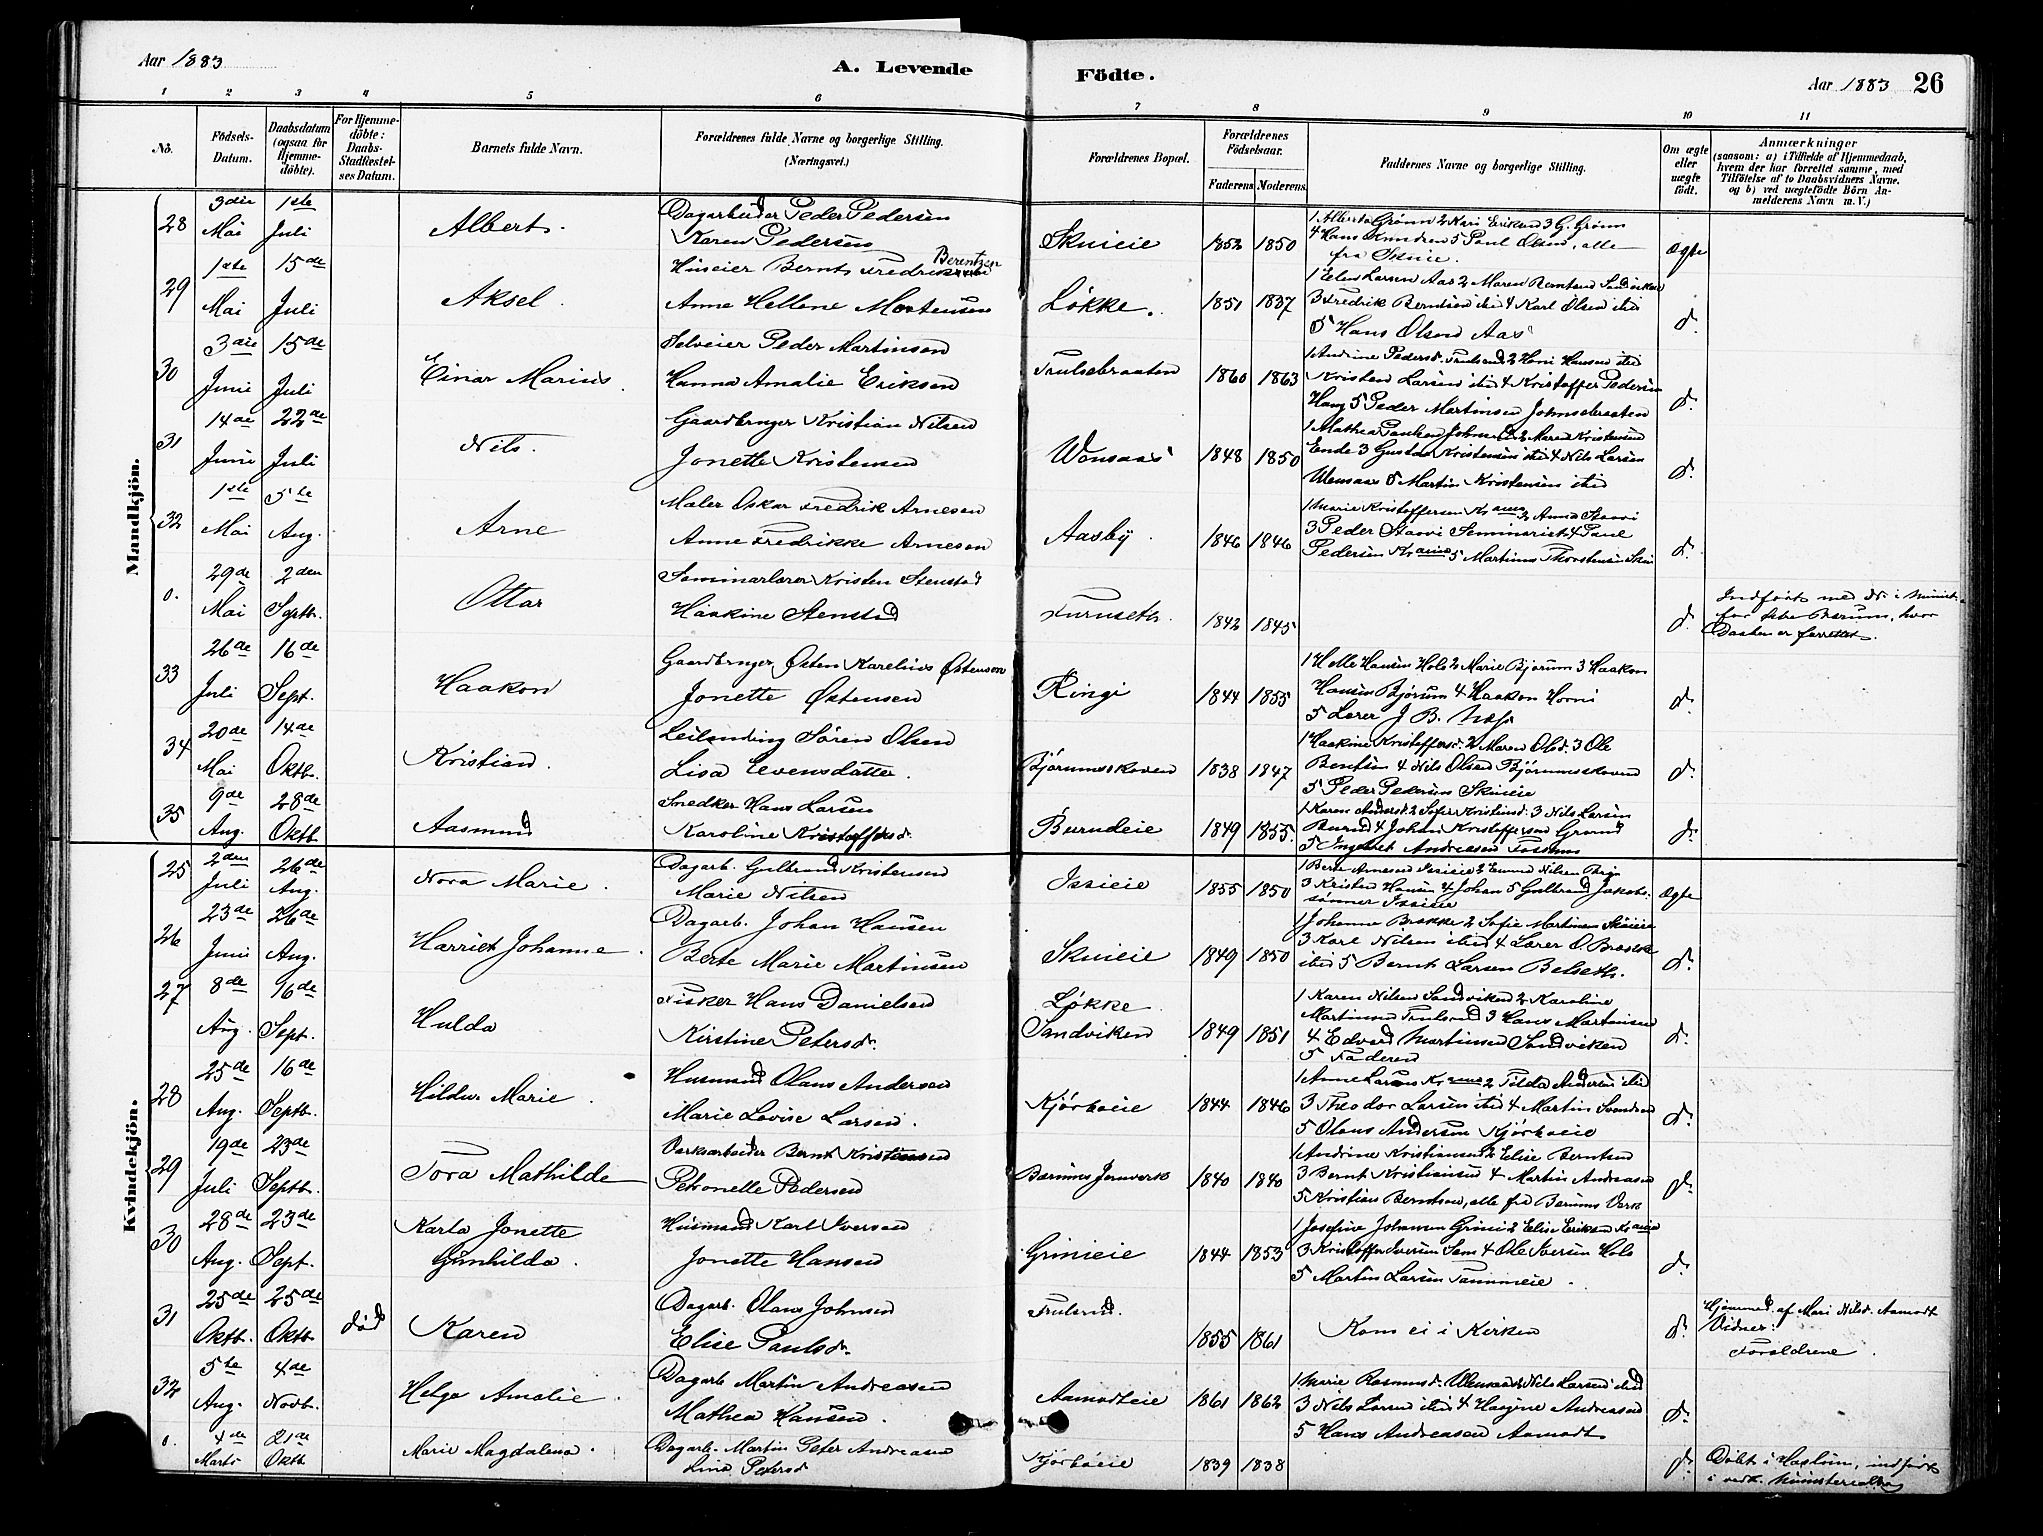 Aar 1883
A. Levende
Födte.
Aar 1883 26
1 2 3 4 5 6 7 8 9 10 11
No. Födsels-Datum. Daabsdatum (ogsaa for Hjemmedöbte). For Hjemmedöbte: Daabs-Stadfæstelses Datum. Barnets fulde Navn. Forældrenes fulde Navne og borgerlige Stilling. (Næringsvei.) Forældrenes Bopæl. Forældrenes Födselsaar. Faderens Moderens Faddernes Navne og borgerlige Stilling. Om ægte eller uægte födt. Anmærkninger (saasom: a) i Tilfælde af Hjemmedaab, hvem der har forrettet samme, med Tilföielse af to Daabsvidners Navne, og b) ved uægtefödte Börn Anmelderens Navn m. V.)
Mandkjön.
28 3die Mai 1ste Juli Albert. Dagarbeider Peder Pedersen
Karen Pedersen Skuieie 1852 1850 ægte
1 Alberta Grønn 2 Kari Eriksen 3 G. Grønn
4 Hans Knudsen 5 Paul Olsen, alle
fra Skuieie.
29 1ste Mai 15de Juli Aksel. Huseier Bernt Fredrik Berentzen
Anne Hellene Mortensen Løkke. 1851 1837 d.
1 Elen Larsen Aas 2 Maren Berntsen Sandviken
3 Fredrik Berntsen ibid 4 Karl Olsen ibid
5 Hans Olsen Aas
30 3die Juni 15de Juli Einar Marius. Selveier Peder Martinsen
Hanna Amalie Eriksen Trulsebraaten 1860 1863 d.
1 Andrine Pedersd. Trulsrud 2 Hansen ibid
Kristen Larsen ibid 4 Kristoffer Pedersen
Haug 5 Peder Martinsen Johnsebraaten
31 14de Juni 22de Juli Nils. Gaardbruger Kristian Nilsen
Jonette Kristensen Wensaas 1848 1850 d.
1 Mathea Paulsen 2 Maren Kristensen
Ende 3 Gustav Kristensen ibid 4 Nils Larsen
Wensaas 5 Martin Kristensen ibid
32 1ste Mai 5te Aug. Arne Maler Oskar Fredrik Arnesen
Anne Fredrikke Arnesen Aasby. 1846 1846 d.
1 Marie Kristoffersen Kr.ania 2 Anna Staavi
3 Peder Staavi Seminarist 4 Paul
Pedersen Kr.ania 5 Martinus Thorstensen Skui
0. 29de Mai 2den Septb. Ottar Seminarlærer Kristen Stenstad
Haakine Stenstad Furuseth. 1842 1845 d.
Indført med Nr i Minist.
for Vestre Bærum, hvor
Daaben er forrettet.
33 26de Juli 16de Sept. Haakon Gaardbruger Østen Karelius Østensen
Jonette Østensen Ringi 1844 1855 d.
1 Helle Hansen Hols 2 Marie Bjørum 3 Haakon
Hansen Bjørum 4 Haakon Horni
5 Lærer J. B. Næss
34 20de Mai 14de Oktb. Kristian. Leilending Søren Olsen
Lisa Evensdatter. Bjørumsskoven 1838 1847 d.
1 Haakine Kristoffersd. 2 Maren Olsd. 3 Ole
Berntsen 4 Nils Olsen Bjørumsskoven
5 Peder Pedersen Skuieie
35 9de Aug. 28de Oktb. Aasmund Snedker Hans Larsen
Karoline Kristoffersd. Burudeie 1849 1855. d.
1 Karen Andersd. 2 Sofie Kristiansd. 3 Nils Larsen
Burud 4 Johan Kristoffersen Grønd
5 Ingebret Andreasen Fossum
Kvindekjön.
25 2den Juli 26de Aug. Nora Marie. Dagarb. Gulbrand Kristensen
Marie Nilsen Issieie 1855 1850 ægte
1 Berte Arnesen Issieie 2 Emma Nilsen
3 Kristen Hansen 4 Johan 5 Gulbrand Jakobs-
sønner Issieie
26 23de Juni 26de Aug. Harriet Johanne. Dagarb. Johan Hansen
Berte Marie Martinsen Skuieie 1849 1850 d.
1 Johanne Brække 2 Sofie Martinsen Skuieie
3 Karl Nilsen ibid 4 Lærer O. Brække
ibid 5 Bernt Larsen Belseth.
27 8de Aug. 16de Sept. Hulda Fisker Hans Danielsen
Kirstine Petersd. Løkke
Sandviken 1849 1851 d.
1 Karen Nilsen Sandviken 2 Karoline
Martinsen Trulsrud 3 Hans Martinsen
4 Edvard Martinsen Sandviken
5 Faderen
28 25de Aug. 16de Septb. Hildur Marie. Husmand Olaus Andersen
Marie Lovise Larsen. Kjørboeie 1844 1846 d.
1 Anne Larsen Kr.ania 2 Tilda Andersen ibid
3 Theodor Larsen ibid 4 Martin Svendsen
5 Olaus Andersen Kjørboeie
29 19de Juli 23de Septb. Tora Mathilde Verksarbeider Bernt Kristiansen
Petronelle Pedersen Bærums Jernverk 1840 1840 d.
1 Andrine Kristiansen 2 Elise Berntsen
3 Bernt Kristiansen 4 Martin Andreasen
5 Kristian Berntsen, alle fra Bærums Verk
30 28de Aug. 23de Sept. Karla Jonette
Gunhilda. Husmand Karl Iversen
Jonette Hansen Grinieie 1844 1853 d.
1 Josefine Johansen Grini 2 Elise Eriksen Kr.ania
3 Kristoffer Iversen Sem 4 Ole Iversen Hols
5 Martin Larsen
31 25de Oktb. 25de Oktb. død Karen Dagarb. Olaus Johnsen
Elise Paulsd. Trulsrud. 1855 1861 Kom ei i Kirken d.
Hjemmed. af Mari Nilsd. Aamodt
Vidner:
Forældrene.
32 5te Aug. 4de Novb. Helga Amalie. Dagarb. Martin Andreasen
Mathea Hansen. Aamodteie 1861 1862 d.
1 Marie Rasmusd. Wensaas 2 Nils Larsen ibid
3 Nils Larsen ibid 4 Hagine Andreasen
5 Hans Andreasen Aamodt
0. 4de Marts 21de Oktb Marie Magdalena. Dagarb. Martin Peter Andreasen
Lina Petersd Kjørboeie 1839 1838 d.
Døbt i Haslum, indført
i vedk. Ministerialbog